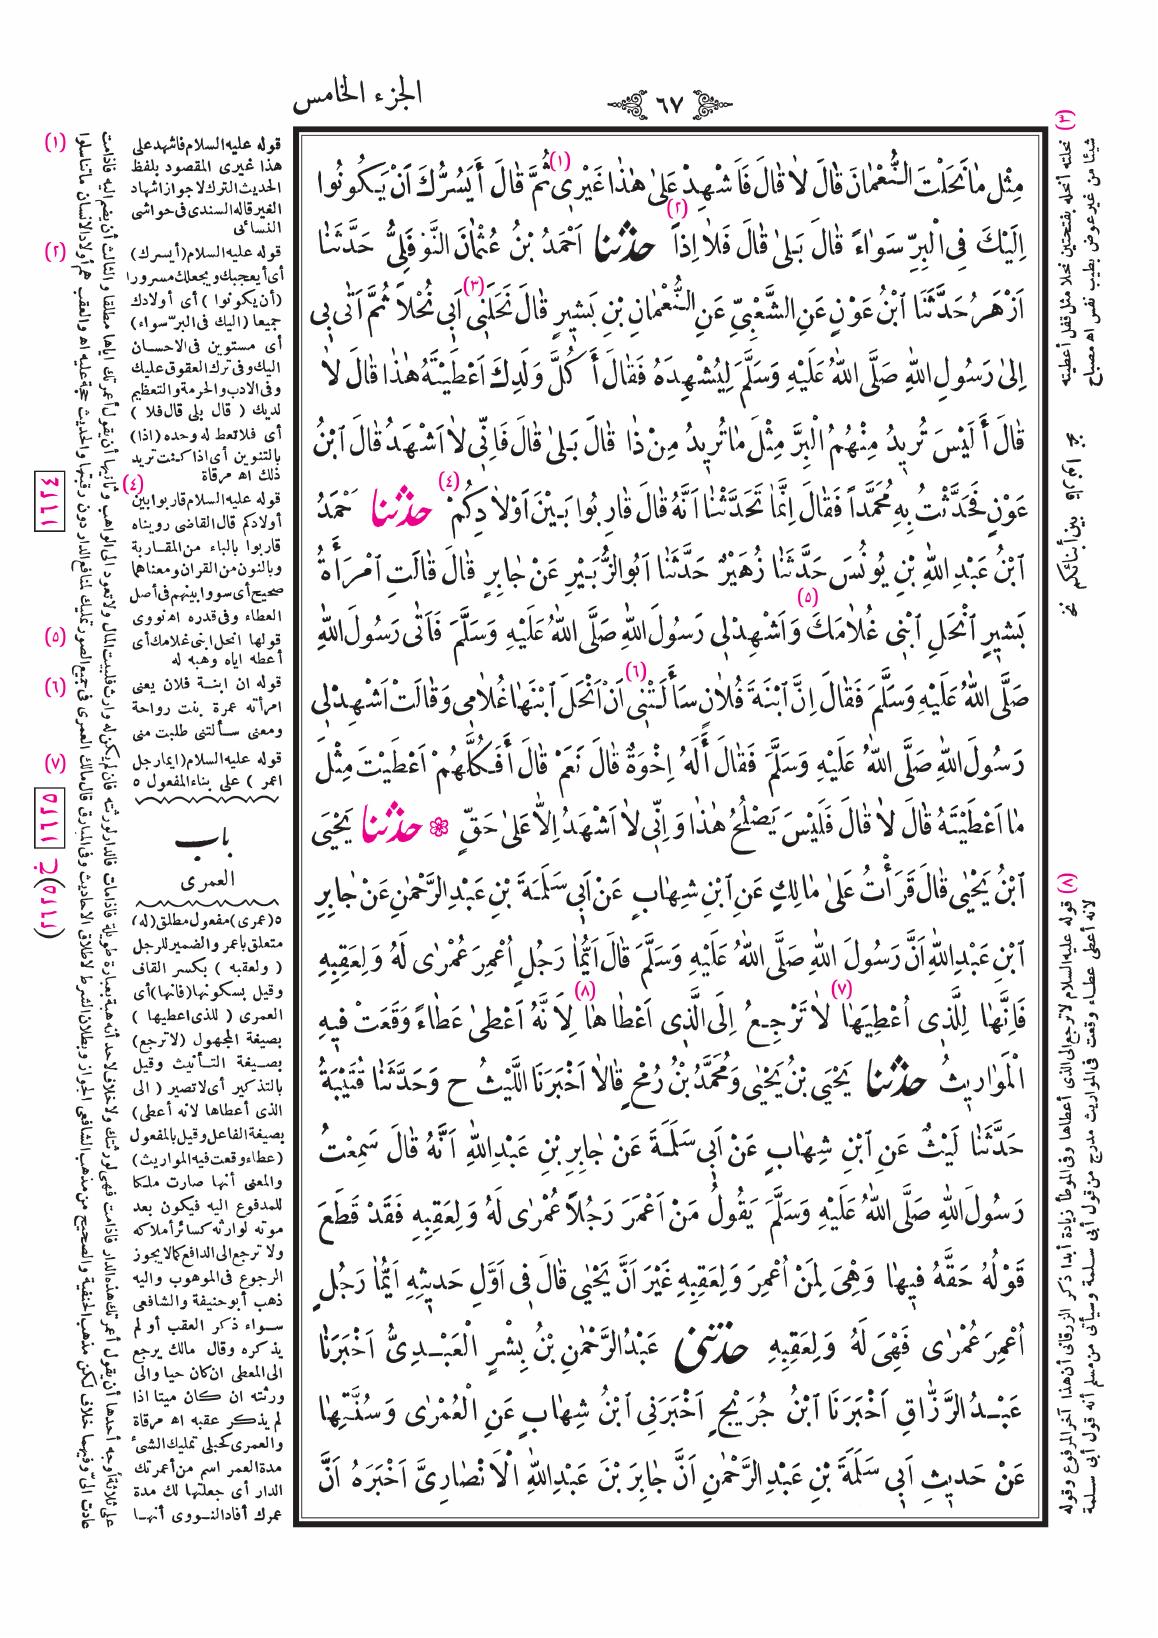 ٦٧
الجزء الخامس
مِثْلَ مَا نَحَلْتَ النُّعْمَانَ قَالَ لَا قَالَ فَاَشْهِدْ عَلَىٰ هٰذَا غَيْرِى (١) ثُمَّ قَالَ أَيَسُرُّكَ اَنْ يَكُونُوا
اِلَيْكَ فِى الْبِرِّ سَوَاءً قَالَ بَلىٰ قَالَ فَلَا اِذاً (٢) حدثنا اَحْمَدُ بْنُ عُثْمَانَ النَّوْفَلِىُّ حَدَّثَنَا
اَزْهَرُ حَدَّثَنَا ابْنُ عَوْنٍ عَنِ الشَّعْبِىِّ عَنِ النُّعْمَانِ بْنِ بَشِيرٍ قَالَ نَحَلَنِى (٣) اَبِى نُحْلاً ثُمَّ اَتٰى بِى
اِلىٰ رَسُولِ اللّٰهِ صَلَّى اللّٰهُ عَلَيْهِ وَسَلَّمَ لِيُشْهِدَهُ فَقَالَ أَكُلَّ وَلَدِكَ اَعْطَيْتَهُ هٰذَا قَالَ لَا
قَالَ أَلَيْسَ تُرِيدُ مِنْهُمُ الْبِرَّ مِثْلَ مَا تُرِيدُ مِنْ ذَا قَالَ بَلىٰ قَالَ فَاِنِّى لَا اَشْهَدُ قَالَ ابْنُ
عَوْنٍ فَحَدَّثْتُ بِهِ مُحَمَّداً فَقَالَ اِنَّمَا تَحَدَّثْنَا اَنَّهُ قَالَ قَارِبُوا بَيْنَ اَوْلَادِكُمْ (٤) حدثنا اَحْمَدُ
ابْنُ عَبْدِ اللّٰهِ بْنِ يُونُسَ حَدَّثَنَا زُهَيْرٌ حَدَّثَنَا اَبُو الزُّبَيْرِ عَنْ جَابِرٍ قَالَ قَالَتِ امْرَأَةُ
بَشِيرٍ انْحَلِ ابْنِى غُلَامَكَ (٥) وَاَشْهِدْ لِى رَسُولَ اللّٰهِ صَلَّى اللّٰهُ عَلَيْهِ وَسَلَّمَ فَاَتٰى رَسُولَ اللّٰهِ
صَلَّى اللّٰهُ عَلَيْهِ وَسَلَّمَ فَقَالَ اِنَّ ابْنَةَ فُلَانٍ سَأَلَتْنِى (٦) اَنْ اَنْحَلَ ابْنَهَا غُلَامِى وَقَالَتْ اَشْهِدْ لِى
رَسُولَ اللّٰهِ صَلَّى اللّٰهُ عَلَيْهِ وَسَلَّمَ فَقَالَ أَلَهُ اِخْوَةٌ قَالَ نَعَمْ قَالَ أَفَكُلَّهُمْ اَعْطَيْتَ مِثْلَ
مَا اَعْطَيْتَهُ قَالَ لَا قَالَ فَلَيْسَ يَصْلُحُ هٰذَا وَاِنِّى لَا اَشْهَدُ اِلَّا عَلىٰ حَقٍّ ❁ حدثنا يَحْيَى
ابْنُ يَحْيٰى قَالَ قَرَأْتُ عَلىٰ مَالِكٍ عَنِ ابْنِ شِهَابٍ عَنْ اَبِى سَلَمَةَ بْنِ عَبْدِ الرَّحْمٰنِ عَنْ جَابِرِ
ابْنِ عَبْدِ اللّٰهِ اَنَّ رَسُولَ اللّٰهِ صَلَّى اللّٰهُ عَلَيْهِ وَسَلَّمَ قَالَ اَيُّمَا رَجُلٍ اُعْمِرَ عُمْرٰى لَهُ وَلِعَقِبِهِ
فَاِنَّهَا لِلَّذِى اُعْطِيَهَا (٧) لَا تَرْجِعُ اِلَى الَّذِى اَعْطَاهَا (٨) لِاَنَّهُ اَعْطىٰ عَطَاءً وَقَعَتْ فِيهِ
الْمَوَارِيثُ حدثنا يَحْيَى بْنُ يَحْيٰى وَمُحَمَّدُ بْنُ رُمْحٍ قَالَا اَخْبَرَنَا اللَّيْثُ ح وَحَدَّثَنَا قُتَيْبَةُ
حَدَّثَنَا لَيْثٌ عَنِ ابْنِ شِهَابٍ عَنْ اَبِى سَلَمَةَ عَنْ جَابِرِ بْنِ عَبْدِ اللّٰهِ اَنَّهُ قَالَ سَمِعْتُ
رَسُولَ اللّٰهِ صَلَّى اللّٰهُ عَلَيْهِ وَسَلَّمَ يَقُولُ مَنْ اَعْمَرَ رَجُلاً عُمْرٰى لَهُ وَلِعَقِبِهِ فَقَدْ قَطَعَ
قَوْلُهُ حَقَّهُ فِيهَا وَهْىَ لِمَنْ اُعْمِرَ وَلِعَقِبِهِ غَيْرَ اَنَّ يَحْيٰى قَالَ فِى اَوَّلِ حَدِيثِهِ اَيُّمَا رَجُلٍ
اُعْمِرَ عُمْرٰى فَهْىَ لَهُ وَلِعَقِبِهِ حدثنى عَبْدُ الرَّحْمٰنِ بْنُ بِشْرٍ الْعَبْدِىُّ اَخْبَرَنَا
عَبْدُ الرَّزَّاقِ اَخْبَرَنَا ابْنُ جُرَيْجٍ اَخْبَرَنِى ابْنُ شِهَابٍ عَنِ الْعُمْرٰى وَسُنَّتِهَا
عَنْ حَدِيثِ اَبِى سَلَمَةَ بْنِ عَبْدِ الرَّحْمٰنِ اَنَّ جَابِرَ بْنَ عَبْدِ اللّٰهِ الْاَنْصَارِىَّ اَخْبَرَهُ اَنَّ
(١) قوله عليه السلام فاشهد على
هذا غيرى المقصود بلفظ
الحديث الترك لا جواز اشهاد
الغير قاله السندى فى حواشى
النسائى
(٢) قوله عليه السلام (أيسرك)
أى أيعجبك ويجعلك مسرورا
(أن يكونوا) أى أولادك
جميعا (اليك فى البر سواء)
أى مستوين فى الاحسان
اليك وفى ترك العقوق عليك
وفى الادب والحرمة والتعظيم
لديك (قال بلى قال فلا)
أى فلا تعط له وحده (اذا)
بالتنوين أى اذا كنت تريد
ذلك اه مرقاة
(٤) قوله عليه السلام قاربوا بين
أولادكم قال القاضى رويناه
قاربوا بالباء من المقاربة
وبالنون من القران ومعناهما
صحيح أى سووا بينهم فى أصل
العطاء وفى قدره اه نووى
(٥) قولها انحل ابنى غلامك أى
أعطه اياه وهبه له
(٦) قوله ان ابنة فلان يعنى
امرأته عمرة بنت رواحة
ومعنى سألتنى طلبت منى
(٧) قوله عليه السلام (ايما رجل
اعمر) على بناء المفعول ٥
باب
العمرى
٥ (عمرى) مفعول مطلق (له)
متعلق باعمر والضمير للرجل
(ولعقبه) بكسر القاف
وقيل بسكونها (فانها) أى
العمرى (للذى اعطيها)
بصيغة المجهول (لا ترجع)
بصيغة التأنيث وقيل
بالتذكير أى لا تصير (الى
الذى أعطاها لانه أعطى)
بصيغة الفاعل وقيل بالمفعول
(عطاء وقعت فيه المواريث)
والمعنى أنها صارت ملكا
للمدفوع اليه فيكون بعد
موته لوارثه كسائر أملاكه
ولا ترجع الى الدافع كما لا يجوز
الرجوع فى الموهوب واليه
ذهب أبو حنيفة والشافعى
سواء ذكر العقب أو لم
يذكره وقال مالك يرجع
الى المعطى ان كان حيا والى
ورثته ان كان ميتا اذا
لم يذكر عقبه اه مرقاة
والعمرى كحبلى تمليك الشئ
مدة العمر اسم من أعمرتك
الدار أى جعلتها لك مدة
عمرك أفاد النووى أنها
٤١٦١
٥١٦١
ج (٥١٦١)
(٣) نحلته أنحله بفتحتين نحلا مثل قفل أعطيته
شيئا من غير عوض بطيب نفس اه مصباح
نخ قاربوا بين أبنائكم نخ
(٨) قوله عليه السلام لا ترجع الى الذى أعطاها وفى الموطأ زيادة أبدا ذكر الزرقانى أن هذا آخر المرفوع وقوله
لانه أعطى عطاء وقعت فى المواريث مدرج من قول أبى سلمة وسيأتى من مسلم أنه قول أبى سلمة